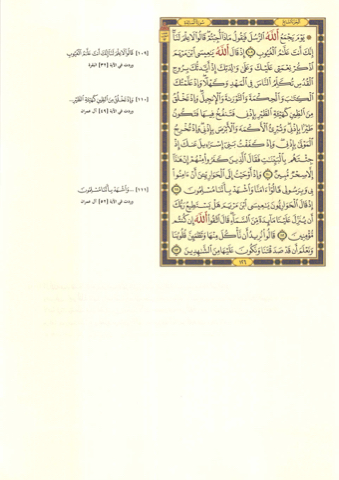 الجزء السابع
سورة المائدة
۞ يَوْمَ يَجْمَعُ ٱللَّهُ ٱلرُّسُلَ فَيَقُولُ مَاذَآ أُجِبْتُمْ قَالُوا۟ لَا عِلْمَ لَنَآ
إِنَّكَ أَنتَ عَلَّٰمُ ٱلْغُيُوبِ ۝١٠٩ إِذْ قَالَ ٱللَّهُ يَٰعِيسَى ٱبْنَ مَرْيَمَ
ٱذْكُرْ نِعْمَتِى عَلَيْكَ وَعَلَىٰ وَٰلِدَتِكَ إِذْ أَيَّدتُّكَ بِرُوحِ
ٱلْقُدُسِ تُكَلِّمُ ٱلنَّاسَ فِى ٱلْمَهْدِ وَكَهْلًا وَإِذْ عَلَّمْتُكَ
ٱلْكِتَٰبَ وَٱلْحِكْمَةَ وَٱلتَّوْرَىٰةَ وَٱلْإِنجِيلَ وَإِذْ تَخْلُقُ
مِنَ ٱلطِّينِ كَهَيْـَٔةِ ٱلطَّيْرِ بِإِذْنِى فَتَنفُخُ فِيهَا فَتَكُونُ
طَيْرًۢا بِإِذْنِى وَتُبْرِئُ ٱلْأَكْمَهَ وَٱلْأَبْرَصَ بِإِذْنِى وَإِذْ تُخْرِجُ
ٱلْمَوْتَىٰ بِإِذْنِى وَإِذْ كَفَفْتُ بَنِىٓ إِسْرَٰٓءِيلَ عَنكَ إِذْ
جِئْتَهُم بِٱلْبَيِّنَٰتِ فَقَالَ ٱلَّذِينَ كَفَرُوا۟ مِنْهُمْ إِنْ هَٰذَآ
إِلَّا سِحْرٌ مُّبِينٌ ۝١١٠ وَإِذْ أَوْحَيْتُ إِلَى ٱلْحَوَارِيِّـۧنَ أَنْ ءَامِنُوا۟
بِى وَبِرَسُولِى قَالُوٓا۟ ءَامَنَّا وَٱشْهَدْ بِأَنَّنَا مُسْلِمُونَ ۝١١١
إِذْ قَالَ ٱلْحَوَارِيُّونَ يَٰعِيسَى ٱبْنَ مَرْيَمَ هَلْ يَسْتَطِيعُ رَبُّكَ
أَن يُنَزِّلَ عَلَيْنَا مَآئِدَةً مِّنَ ٱلسَّمَآءِ قَالَ ٱتَّقُوا۟ ٱللَّهَ إِن كُنتُم
مُّؤْمِنِينَ ۝١١٢ قَالُوا۟ نُرِيدُ أَن نَّأْكُلَ مِنْهَا وَتَطْمَئِنَّ قُلُوبُنَا
وَنَعْلَمَ أَن قَدْ صَدَقْتَنَا وَنَكُونَ عَلَيْهَا مِنَ ٱلشَّٰهِدِينَ ۝١١٣
١٢٦
[١٠٩] قَالُوا۟ لَا عِلْمَ لَنَآ إِنَّكَ أَنتَ عَلَّٰمُ ٱلْغُيُوبِ
وردت في الآية [٣٢] البقرة
[١١٠] وَإِذْ تَخْلُقُ مِنَ ٱلطِّينِ كَهَيْـَٔةِ ٱلطَّيْرِ...
وردت في الآية [٤٩] آل عمران
[١١١] ...وَٱشْهَدْ بِأَنَّنَا مُسْلِمُونَ
وردت في الآية [٥٢] آل عمران